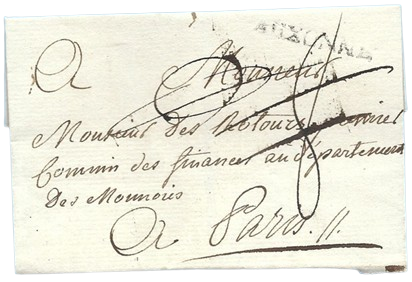 AUXONNE
A Monsieur
Monsieur des Rotours premier
Commis des finances au département
Des Monnoies
A Paris //.